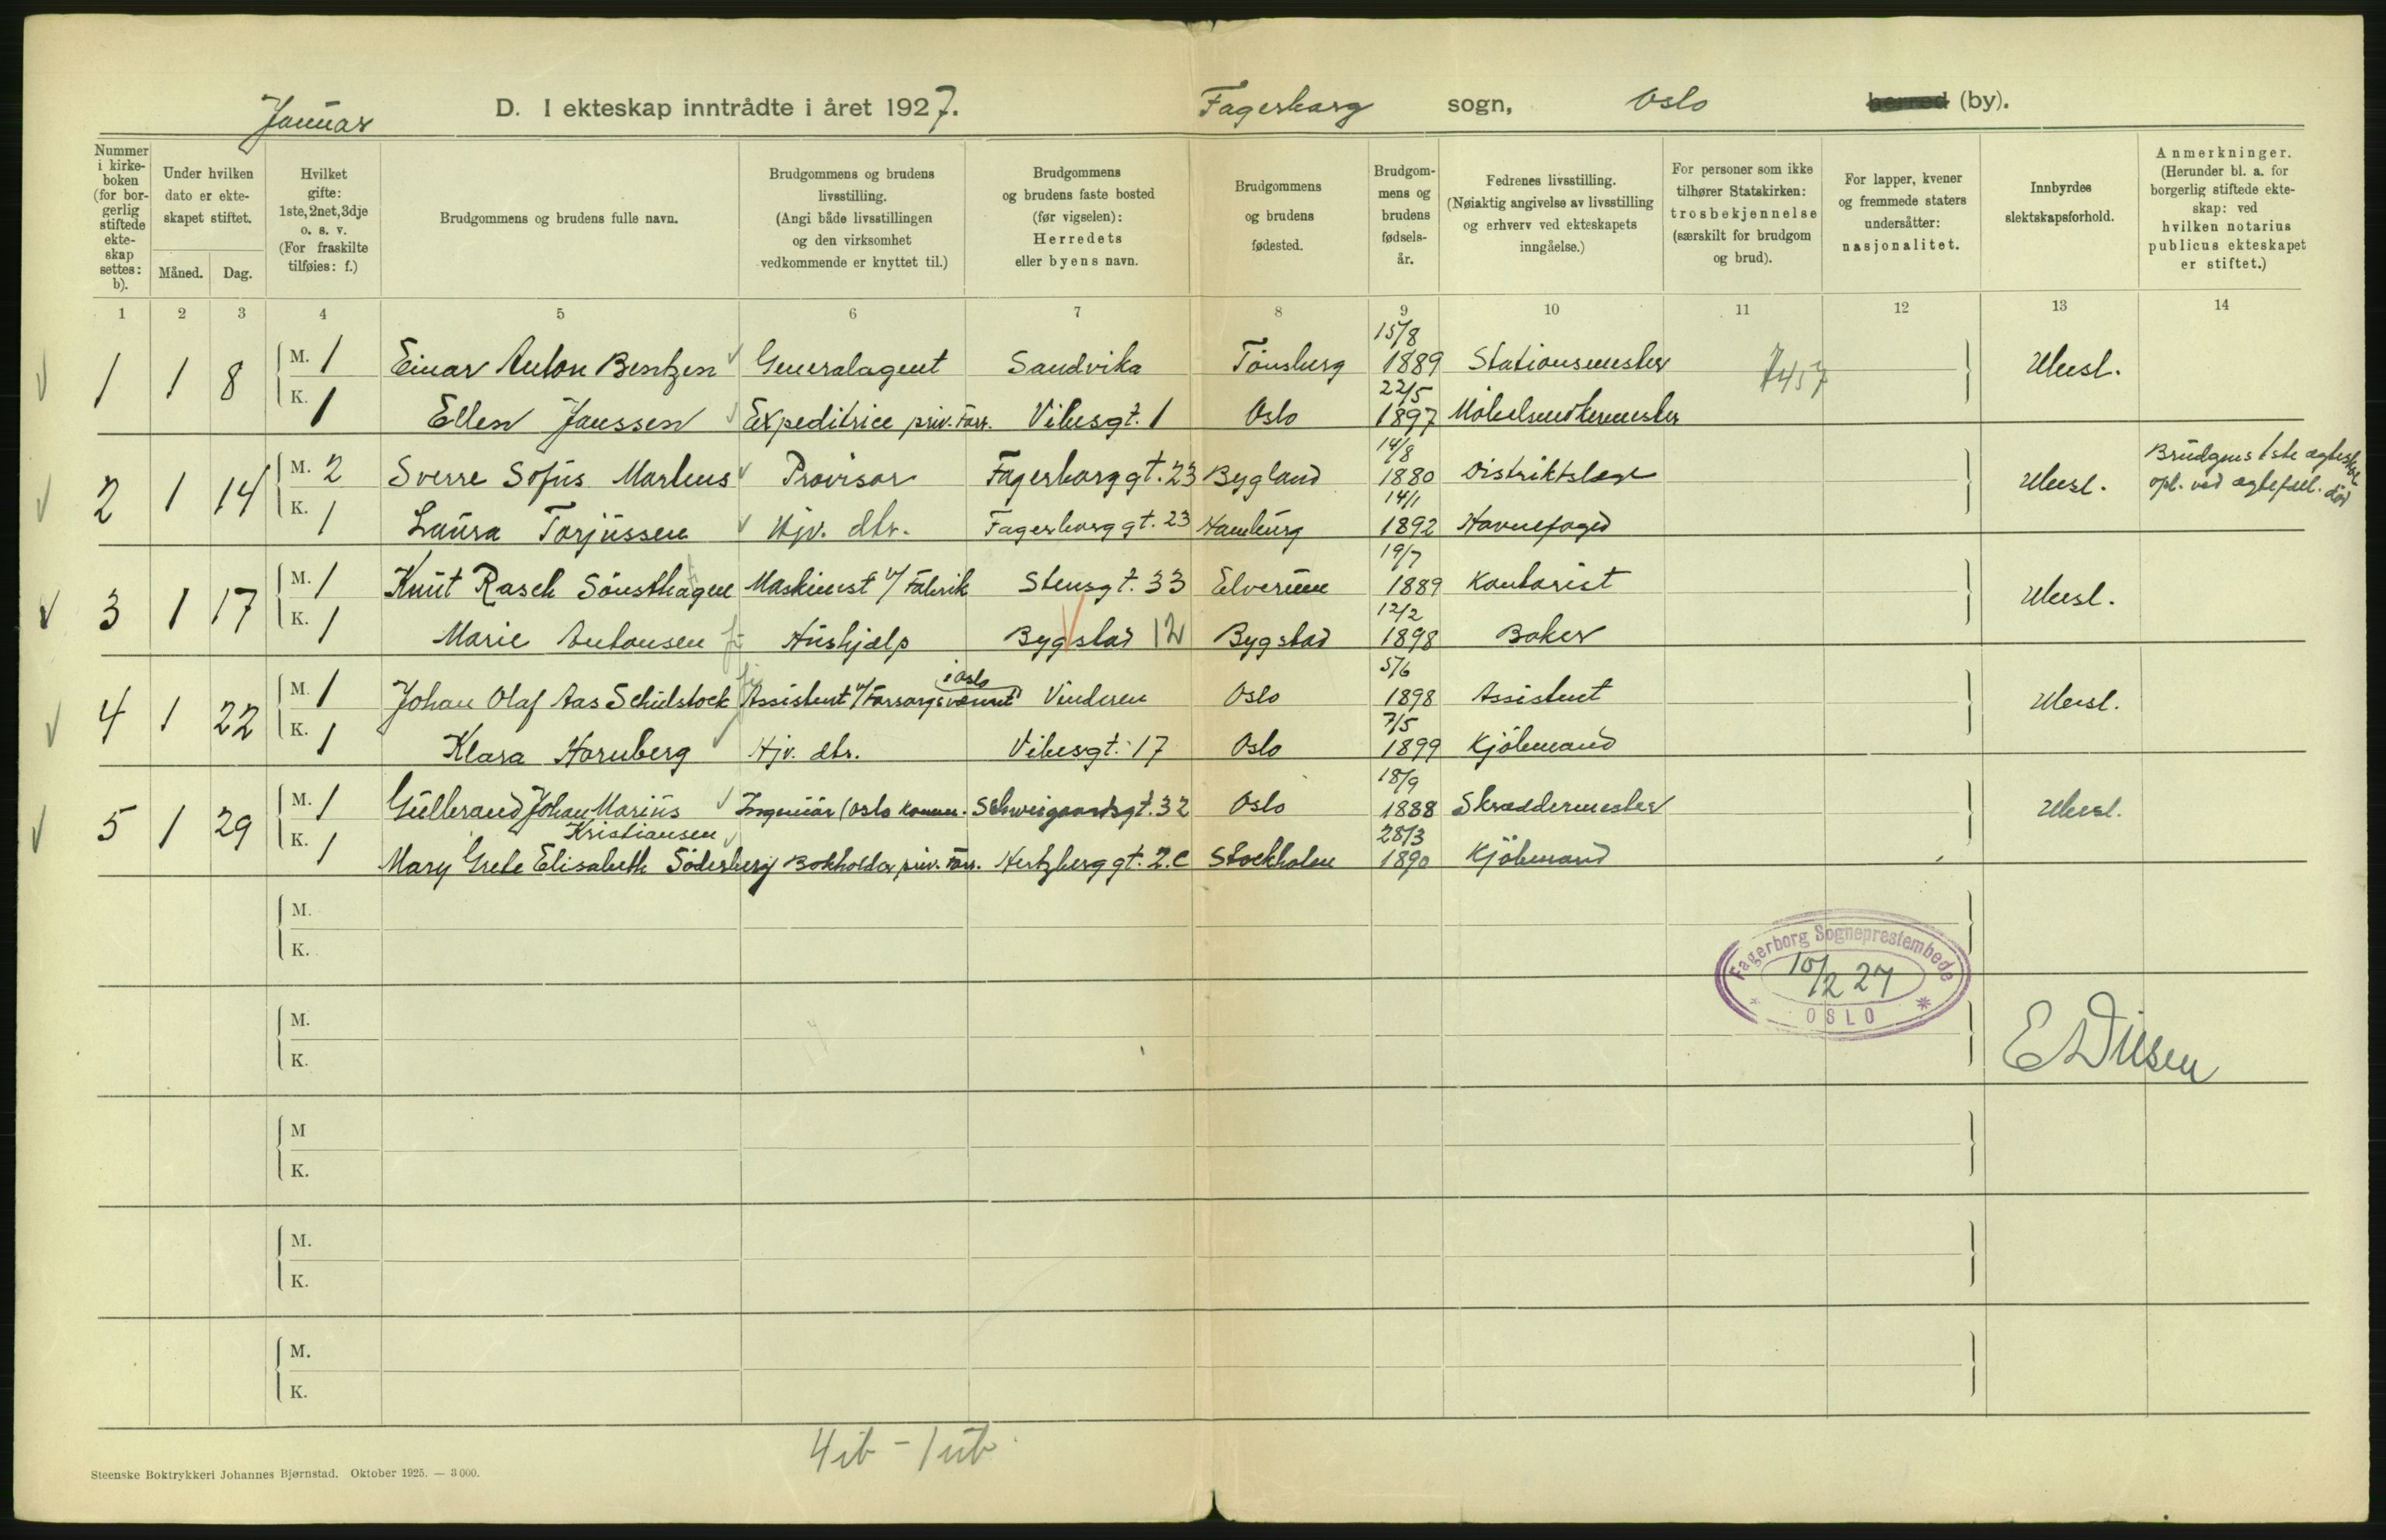 Januar
D. I ekteskap inntrådte i året 1927.
Fagerborg sogn, Oslo herred (by).
Nummer i kirkeboken (for borgerlig stiftede ekteskap settes: b).
Under hvilken dato er ekteskapet stiftet.
Måned. Dag.
Hvilket gifte: 1ste, 2net, 3dje o. s. v. (For fraskilte tilføies: f.)
Brudgommens og brudens fulle navn.
Brudgommens og brudens livsstilling. (Angi både livsstillingen og den virksomhet vedkommende er knyttet til.)
Brudgommens og brudens faste bosted (før vigselen): Herredets eller byens navn.
Brudgommens og brudens fødested.
Brudgommens og brudens fødselsår.
Fedrenes livsstilling. (Nøiaktig angivelse av livsstilling og erhverv ved ekteskapets inngåelse.)
For personer som ikke tilhører Statskirken: trosbekjennelse (særskilt for brudgom og brud).
For lapper, kvener og fremmede staters undersåtter: nasjonalitet.
Innbyrdes slektskapsforhold.
Anmerkninger. (Herunder bl. a. for borgerlig stiftede ekteskap: ved hvilken notarius publicus ekteskapet er stiftet.)
1 2 3 4 5 6 7 8 9 10 11 12 13 14
1 1 8 M. 1 Einar Anton Bentzen Generalagent Sandvika Tönsberg 15/8 1889 Stationsmester 7457 Ubesl.
K. 1 Ellen Janssen Expeditrice priv. forr. Vibesgt. 1 Oslo 22/5 1897 Möbelsnedkermester
2 1 14 M. 2 Sverre Sofus Martens Provisor Fagerborggt. 23 Bygland 14/8 1880 Distriktslæge Ubesl. Brudgms 1ste ægteskap opl. ved ægtefæll. död
K. 1 Laura Torjussen Hjv. dtr. Fagerborggt. 23 Hamburg 14/1 1892 Havnefoged
3 1 17 M. 1 Knut Rasch Sönsthagen Maskinist v/ Fabrik Stensgt. 33 Elverum 19/7 1889 Kontorist Ubesl.
K. 1 Marie Antonsen Hushjælp Bygstad 12 Bygstad 12/2 1898 Baker
4 1 22 M. 1 Johan Olaf Aas Schulstock Assistent v/ Forsorgsvæsnet i Oslo Vinderen Oslo 5/6 1898 Assistent Ubesl.
K. 1 Klara Hornberg Hjv. dtr. Vibesgt. 17 Oslo 7/5 1899 Kjöbmand
5 1 29 M. 1 Gulbrand Johan Marius Kristiansen Ingeniör (Oslo Komm. Schweigaardsgt. 32 Oslo 18/9 1888 Skræddermester Ubesl.
K. 1 Mary Grete Elisabeth Söderberg Bokholder priv. forr. Hertzberggt. 2.c Stockholm 28/3 1890 Kjöbmand
M.
K.
Fagerborg Sogneprestembede
10/2 27
OSLO
M.
K.
E Nilsen
M
K.
M.
K.
M.
K.
4 ib - 1 ub
Steenske Boktrykkeri Johannes Bjørnstad. Oktober 1925. — 3 000.